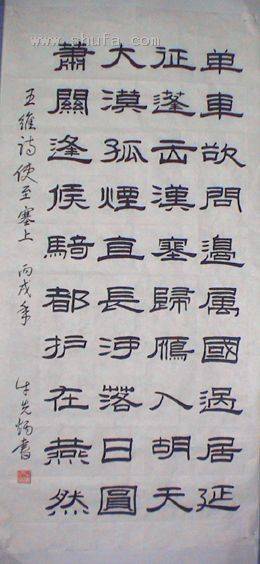 www.shufa.com
单車欲問邊属國過居延
征蓬出漢塞歸鴈入胡天
大漠孤煙直長河落日圓
蕭關逢候騎都护在燕然
王維詩使至塞上 丙戌年 先炳書